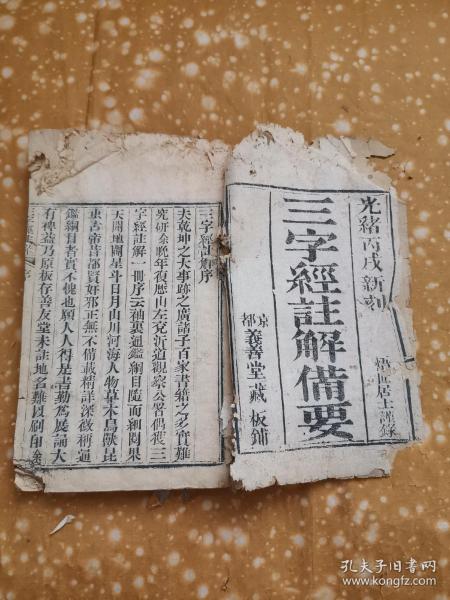 光緒丙戌新刻
三字經註解備要
悟世居士謹錄
京都義善堂藏板鋪
三字經註解序
夫乾坤之大事跡之廣諸子百家書籍之多實難
究研余晚年復歷山左兗沂道觀察公署偶獲三
字經註解一冊序云袖裏通鑑綱目隨而細閱果
天開地闢星斗日月山川河海人物草木鳥獸昆
虫古帝昔都賢奸邪正無不備載精詳深微稱通
鑑綱目者實不愧也願人人得是書勤為展誦大
有裨益乃原板存善友堂未註地名難以刷印
孔夫子旧书网
www.kongfz.com